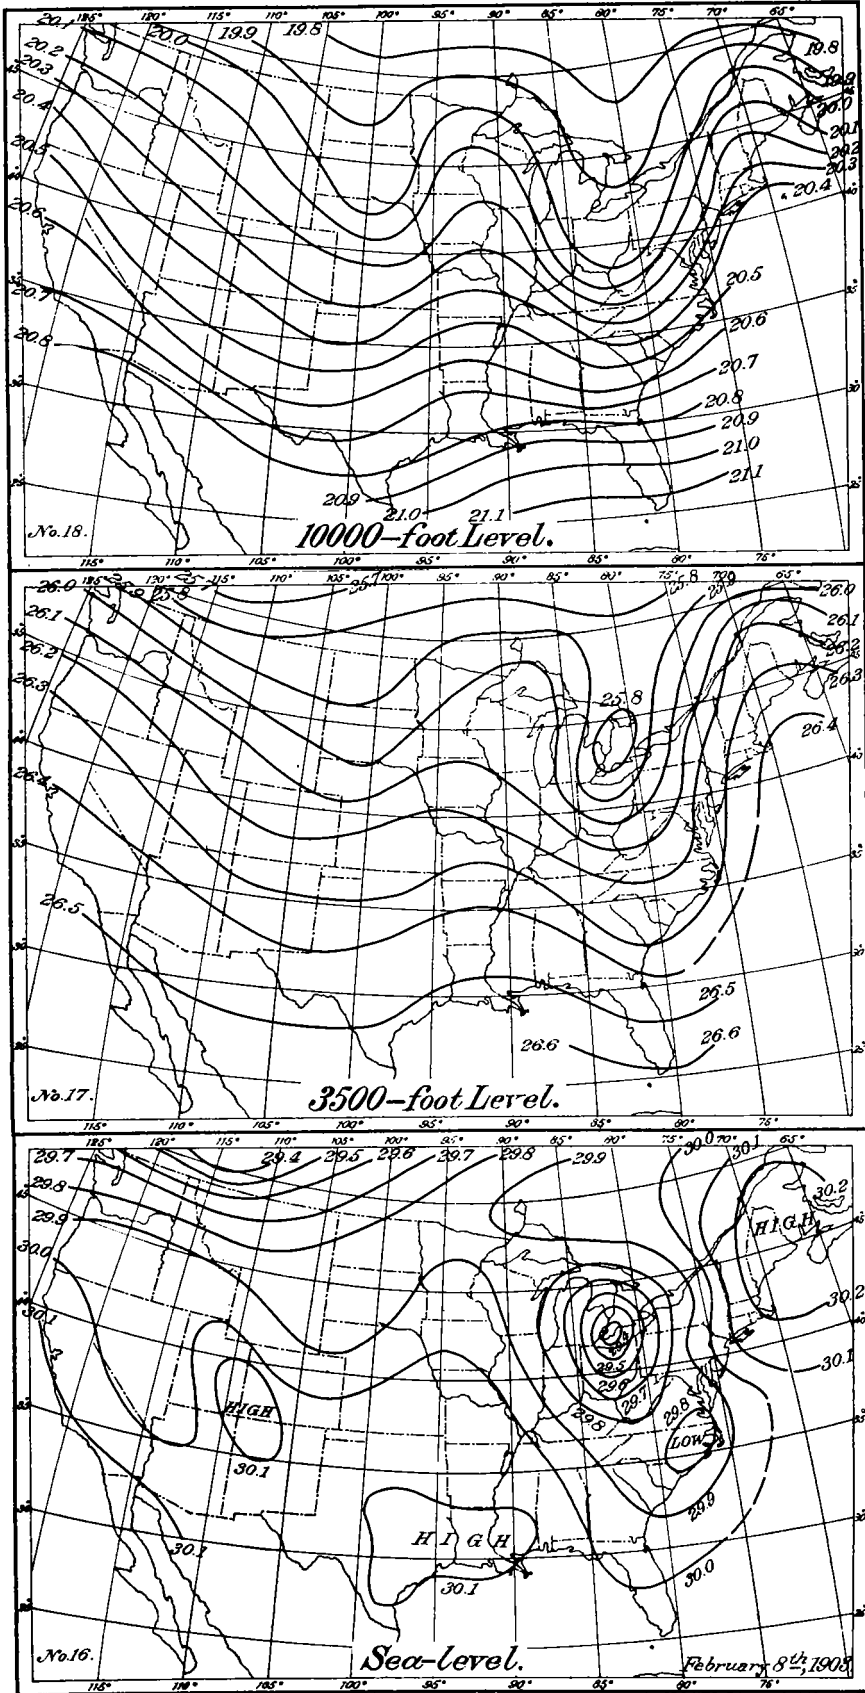 125° 120° 115° 110° 105° 100° 95° 90° 85° 80° 75° 70° 65°
20.1 20.0 19.9 19.8
20.2
20.3
20.4
20.5
20.6
20.7
20.8
19.8
19.9
20.0
20.1
20.2
20.3
20.4
20.5
20.6
20.7
20.8
20.9
21.0
21.1
20.9
21.0 21.1
No.18. 10000-foot Level.
115° 110° 105° 100° 95° 90° 85° 80° 75°
125° 120° 115° 110° 105° 100° 95° 90° 85° 80° 75° 70° 65°
26.0 25.8 25.7 25.8 26.0
26.1 26.1
26.2 26.2
26.3 26.3
25.8
26.4
26.4
26.5
26.5
26.6 26.6
No.17. 3500-foot Level.
115° 110° 105° 100° 95° 90° 85° 80° 75°
125° 120° 115° 110° 105° 100° 95° 90° 85° 80° 75° 70° 65°
29.7 29.4 29.5 29.6 29.7 29.8 29.9 30.0 30.1
29.8 30.2
29.9 HIGH
30.0
30.1 30.2
29.5 30.1
29.6
29.7
29.8 29.8
HIGH
LOW
30.1
29.9
HIGH
30.1 30.1 30.0
No.16. Sea-level. February 8th, 1903
115° 110° 105° 100° 95° 90° 85° 80° 75°